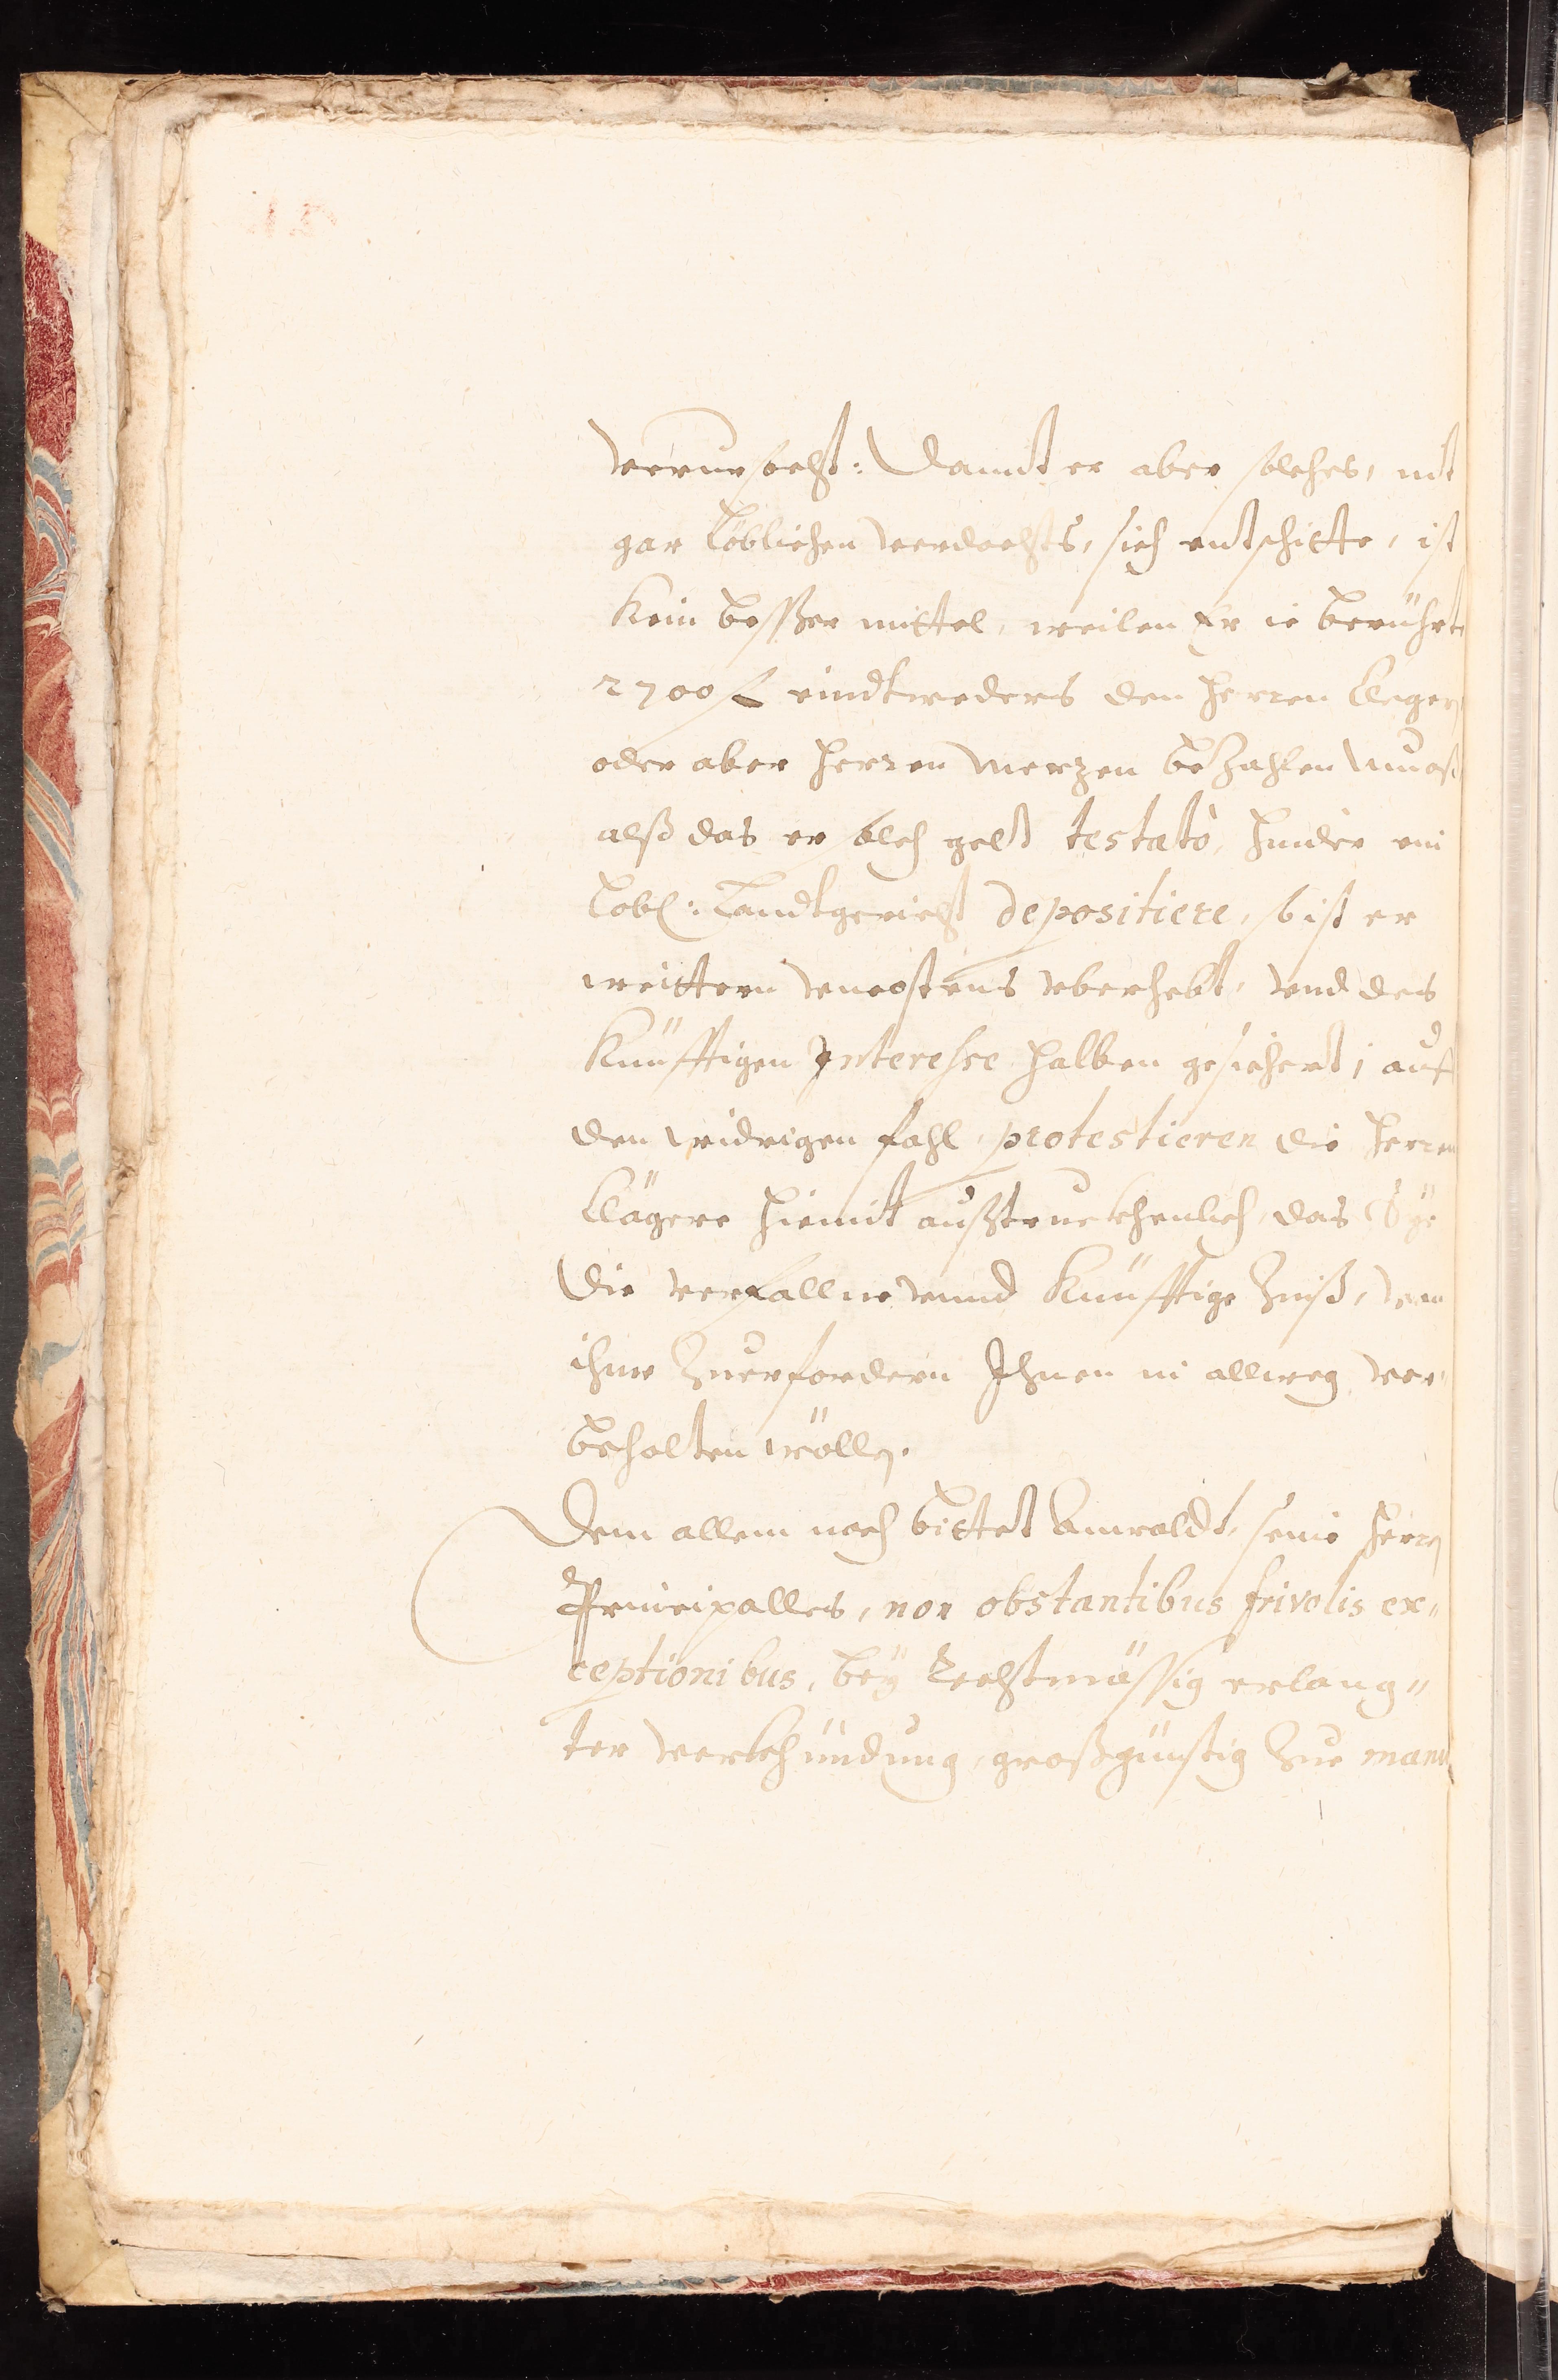 verursacht: Damit er aber solches, nit
gar Löblichen verdachts, sich entschitte, ist
Kein besßer mittel, weilen Er ie berührte
2700 fl eindtweders den herren Cleger
oder aber herren Merzen bezahlen muoß
alß das er solch gelt testato, hinder ein
Lobl: Landtgericht depositiere, so ist er
weittern vncostens vberhebt, vnd des
Künfftigen Interesse halben gesichert; auf
den widrigen fahl, protestieren die herren
Clägere hiemit außtruckhenlich, das Sye
die verfallne vnnd Künfftige Zinß, von
ihme Zuerfordern Ihnen in allweg vor
behalten wöllen.
Dem allem nach bittet Anwaldt, seine herren
Principalles, non obstantibus frivolis ex¬
ceptionibus, bey Rechtmässig erlang¬
ter verkhündung, großgünstig Zue manu